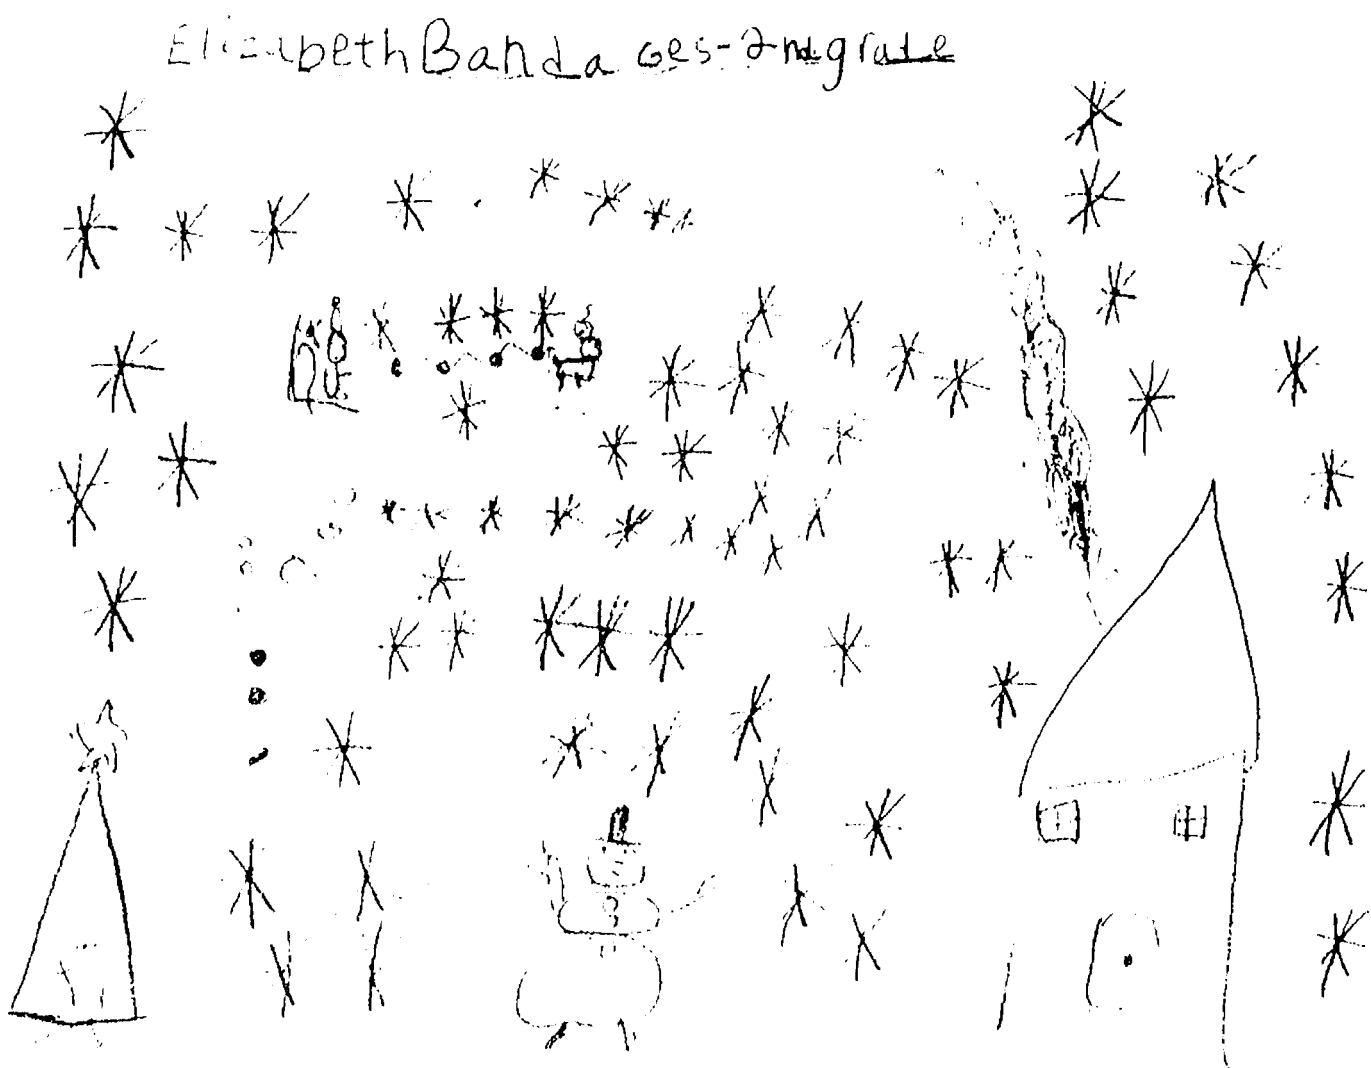 Elizabeth Banda Ges-2nd grade